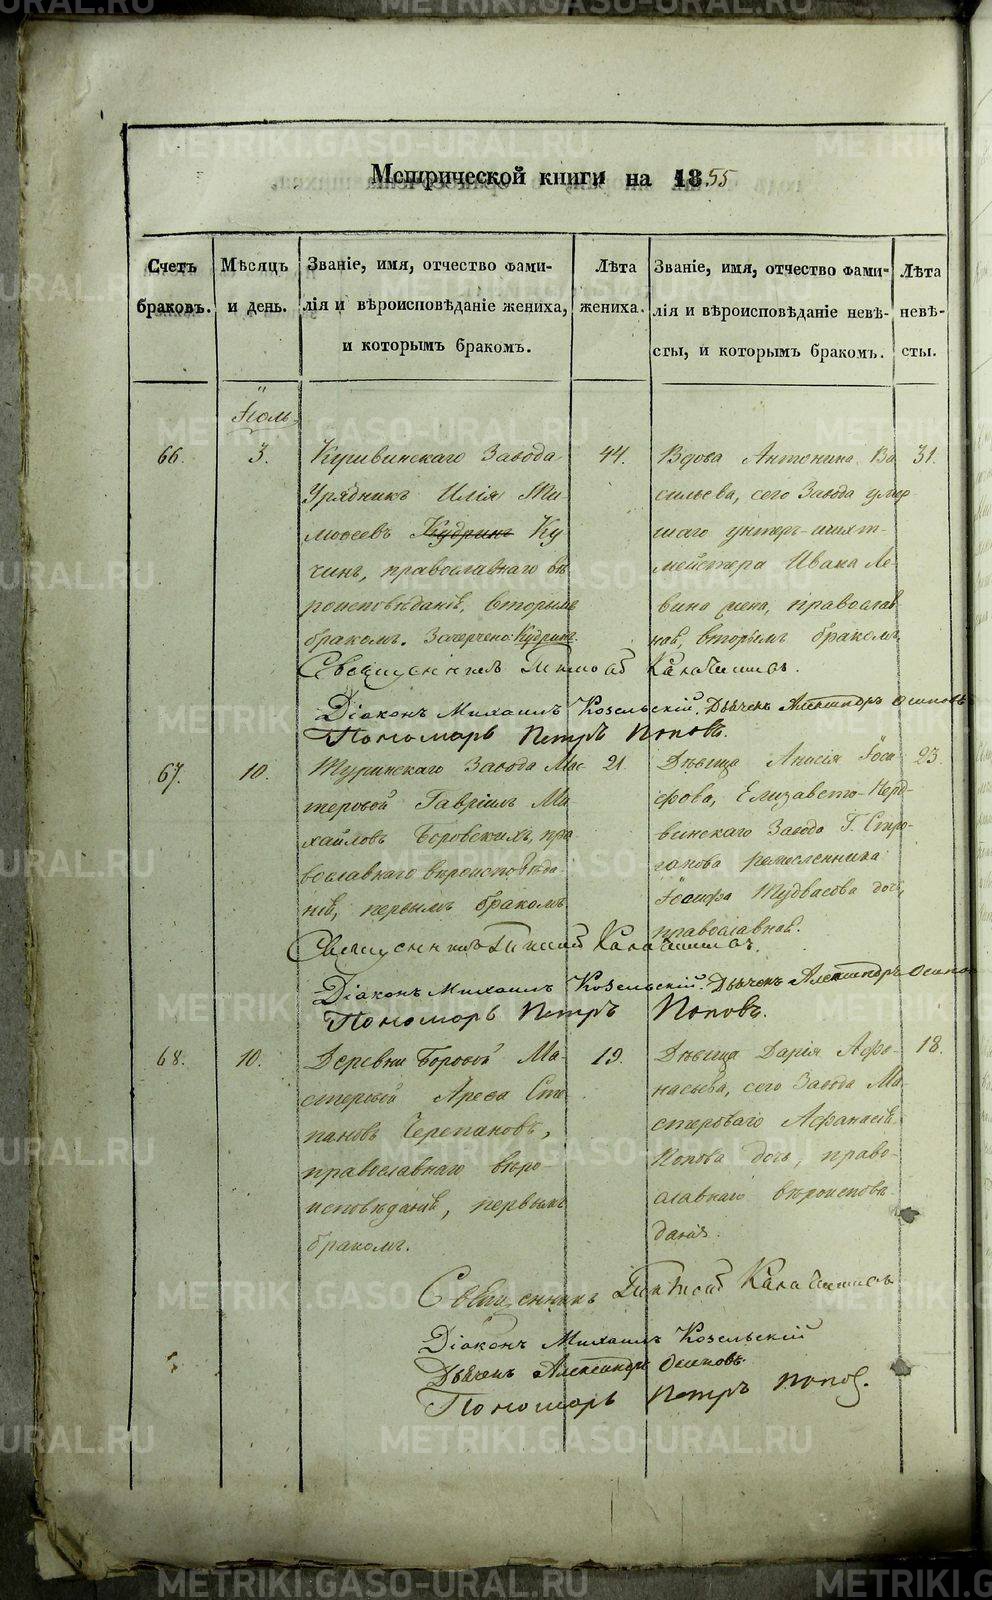 Метрической книги на 1855
Счетъ браковъ.
Мѣсяцъ и день.
Званіе, имя, отчество фами-
лія и вѣроисповѣданіе жениха,
и которымъ бракомъ.
Лѣта жениха.
Званіе, имя, отчество фами-
лія и вѣроисповѣданіе невѣ-
сты, и которымъ бракомъ.
Лѣта невѣ-
сты.
66.
3.
Кушвинскаго Завода
Урядникъ Илія Ти-
моѳеевъ Кудринъ Ку
чинъ, православнаго вѣ
роисповѣданія, вторымъ
бракомъ. Зачерчено: Кудринъ
44.
Вдова Антонина Ва
сильева, сего Завода умер
шаго унтеръ-шихт-
мейстера Ивана Ле-
вина жена, православ
ная, вторымъ бракомъ
31.
Священникъ
Діаконъ Михаилъ Козельскій. Дьячекъ Александръ Осиповъ
Пономарь Петръ Поповъ.
67.
10.
Туринскаго Завода Мас
теровой Гавріилъ Ми-
хайловъ Боровскихъ, пра
вославнаго вѣроисповѣда-
нія, первымъ бракомъ
21.
Дѣвица Анисія Іоси-
фова, Елизавето-Нерд-
винскаго Завода Г. Стро-
ганова ремесленника
Іосифа Тудвасова дочь,
православная.
23.
Священникъ
Діаконъ Михаилъ Козельскій. Дьячекъ Александръ Осипов
Пономарь Петръ Поповъ.
68.
10.
Деревни Боровой Ма-
стеровой Ареѳа Сте
пановъ Черепановъ,
православнаго вѣро-
исповѣданія, первымъ
бракомъ.
19.
Дѣвица Дарія Афо-
насьева, сего Завода Ма-
стероваго Афанасія
Попова дочь, право-
славнаго вѣроиспова
данія.
18.
Священникъ
Діаконъ Михаилъ Козельскій
Дьячекъ Александръ Осиповъ
Пономарь Петръ Попов.
METRIKI.GASO-URAL.RU